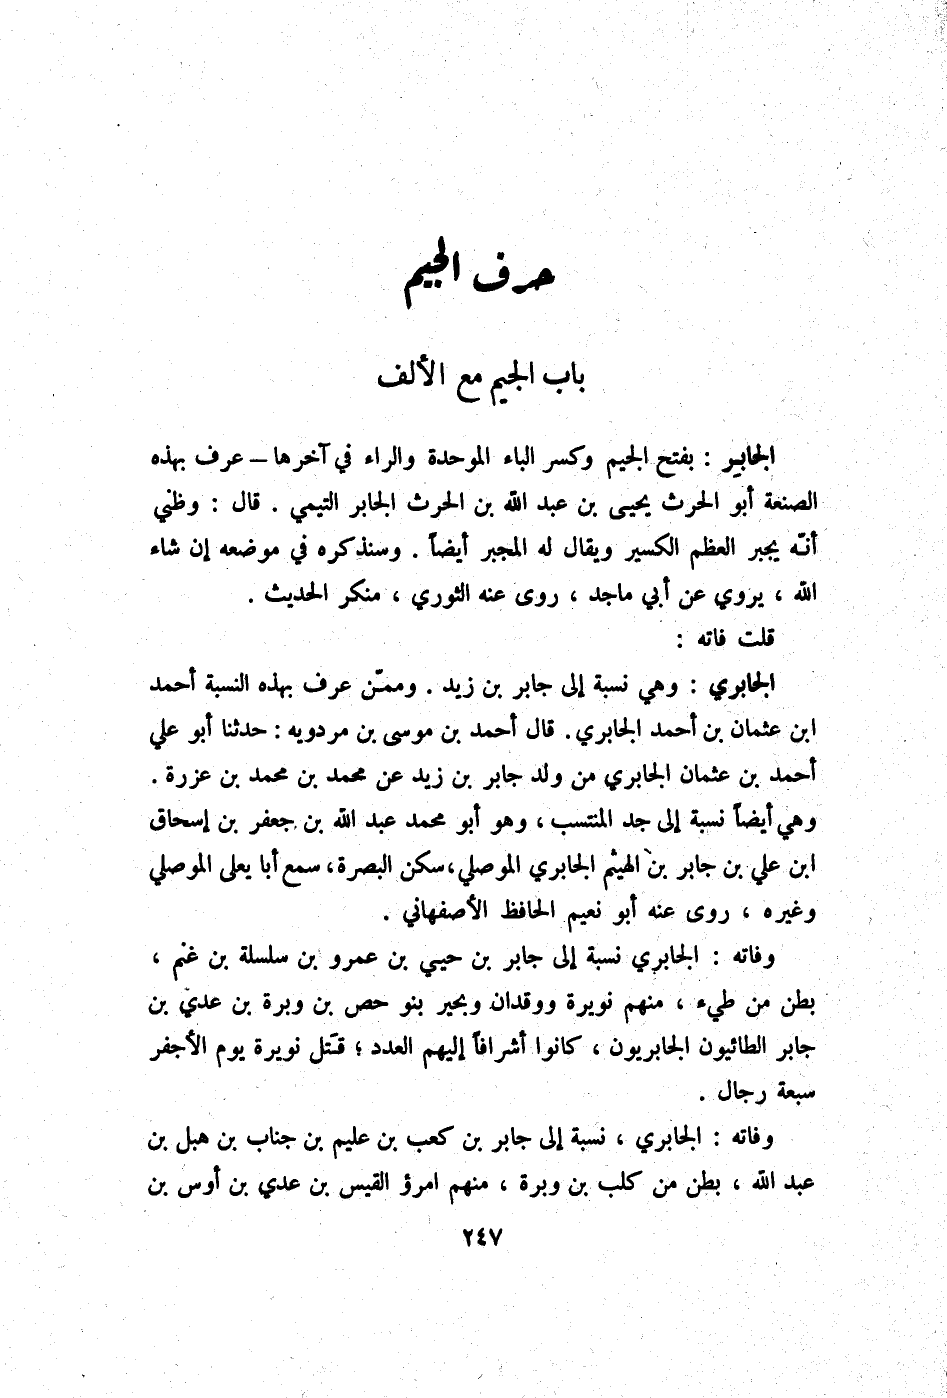 حرف الجيم
باب الجيم مع الألف
الجابر : بفتح الجيم وكسر الباء الموحدة والراء في آخرها – عرف بهذه
الصنعة أبو الحرث يحيى بن عبد الله بن الحرث الجابر التيمي . قال : وظني
أنّه يجبر العظم الكسير ويقال له المجبر أيضاً . وسنذكره في موضعه إن شاء
الله ، يروي عن أبي ماجد ، روى عنه الثوري ، منكر الحديث .
قلت فاته :
الجابري : وهي نسبة إلى جابر بن زيد . وممّن عرف بهذه النسبة أحمد
ابن عثمان بن أحمد الجابري . قال أحمد بن موسى بن مردويه : حدثنا أبو علي
أحمد بن عثمان الجابري من ولد جابر بن زيد عن محمد بن محمد بن عزرة .
وهي أيضاً نسبة إلى جد المنتسب ، وهو أبو محمد عبد الله بن جعفر بن إسحاق
ابن علي بن جابر بن الهيثم الجابري الموصلي ، سكن البصرة ، سمع أبا يعلى الموصلي
وغيره ، روى عنه أبو نعيم الحافظ الأصفهاني .
وفاته : الجابري نسبة إلى جابر بن حيي بن عمرو بن سلسلة بن غنم ،
بطن من طيء ، منهم نويرة ووقدان وبحير بنو حص بن وبرة بن عدي بن
جابر الطائيون الجابريون ، كانوا أشرافاً إليهم العدد ؛ قتّل نويرة يوم الأجفر
سبعة رجال .
وفاته : الجابري ، نسبة إلى جابر بن كعب بن عليم بن جناب بن هبل بن
عبد الله ، بطن من كلب بن وبرة ، منهم امرؤ القيس بن عدي بن أوس بن
٢٤٧